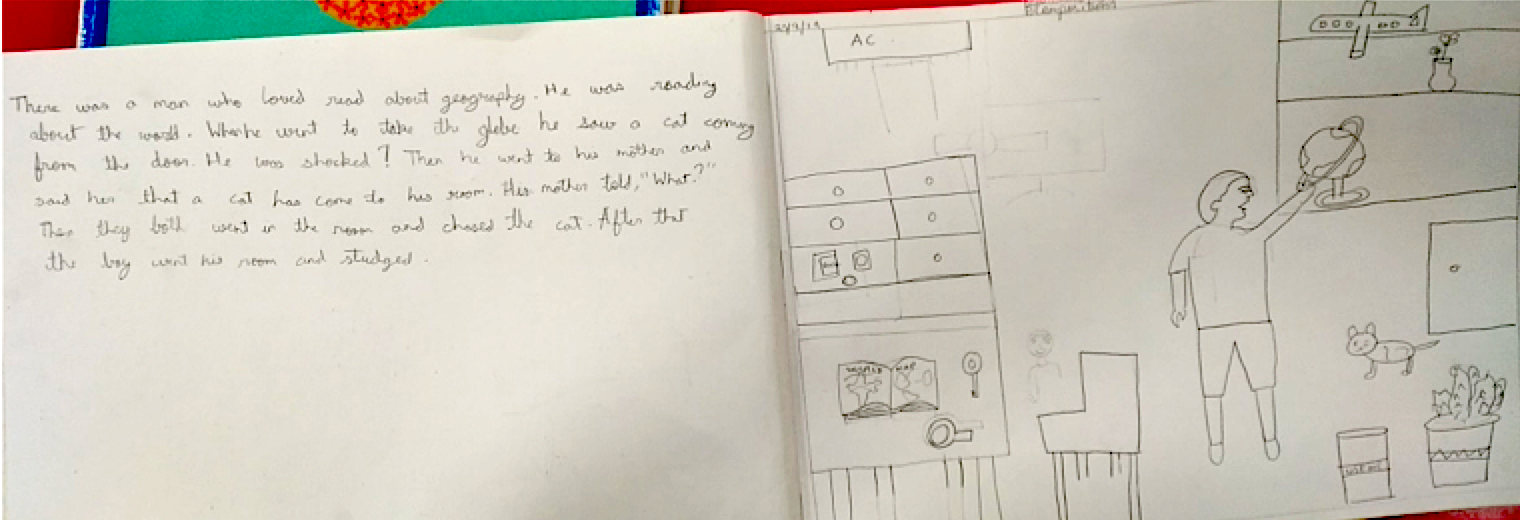 There was a man who loved read about geography. He was reading
about the world. When he went to take the globe he saw a cat coming
from the door. He was shocked? Then he went to his mother and
said her that a cat has come to his room. His mother told, "What?"
Then they both went in the room and chased the cat. After that
the boy went his room and studged.
AC
WORLD MAP